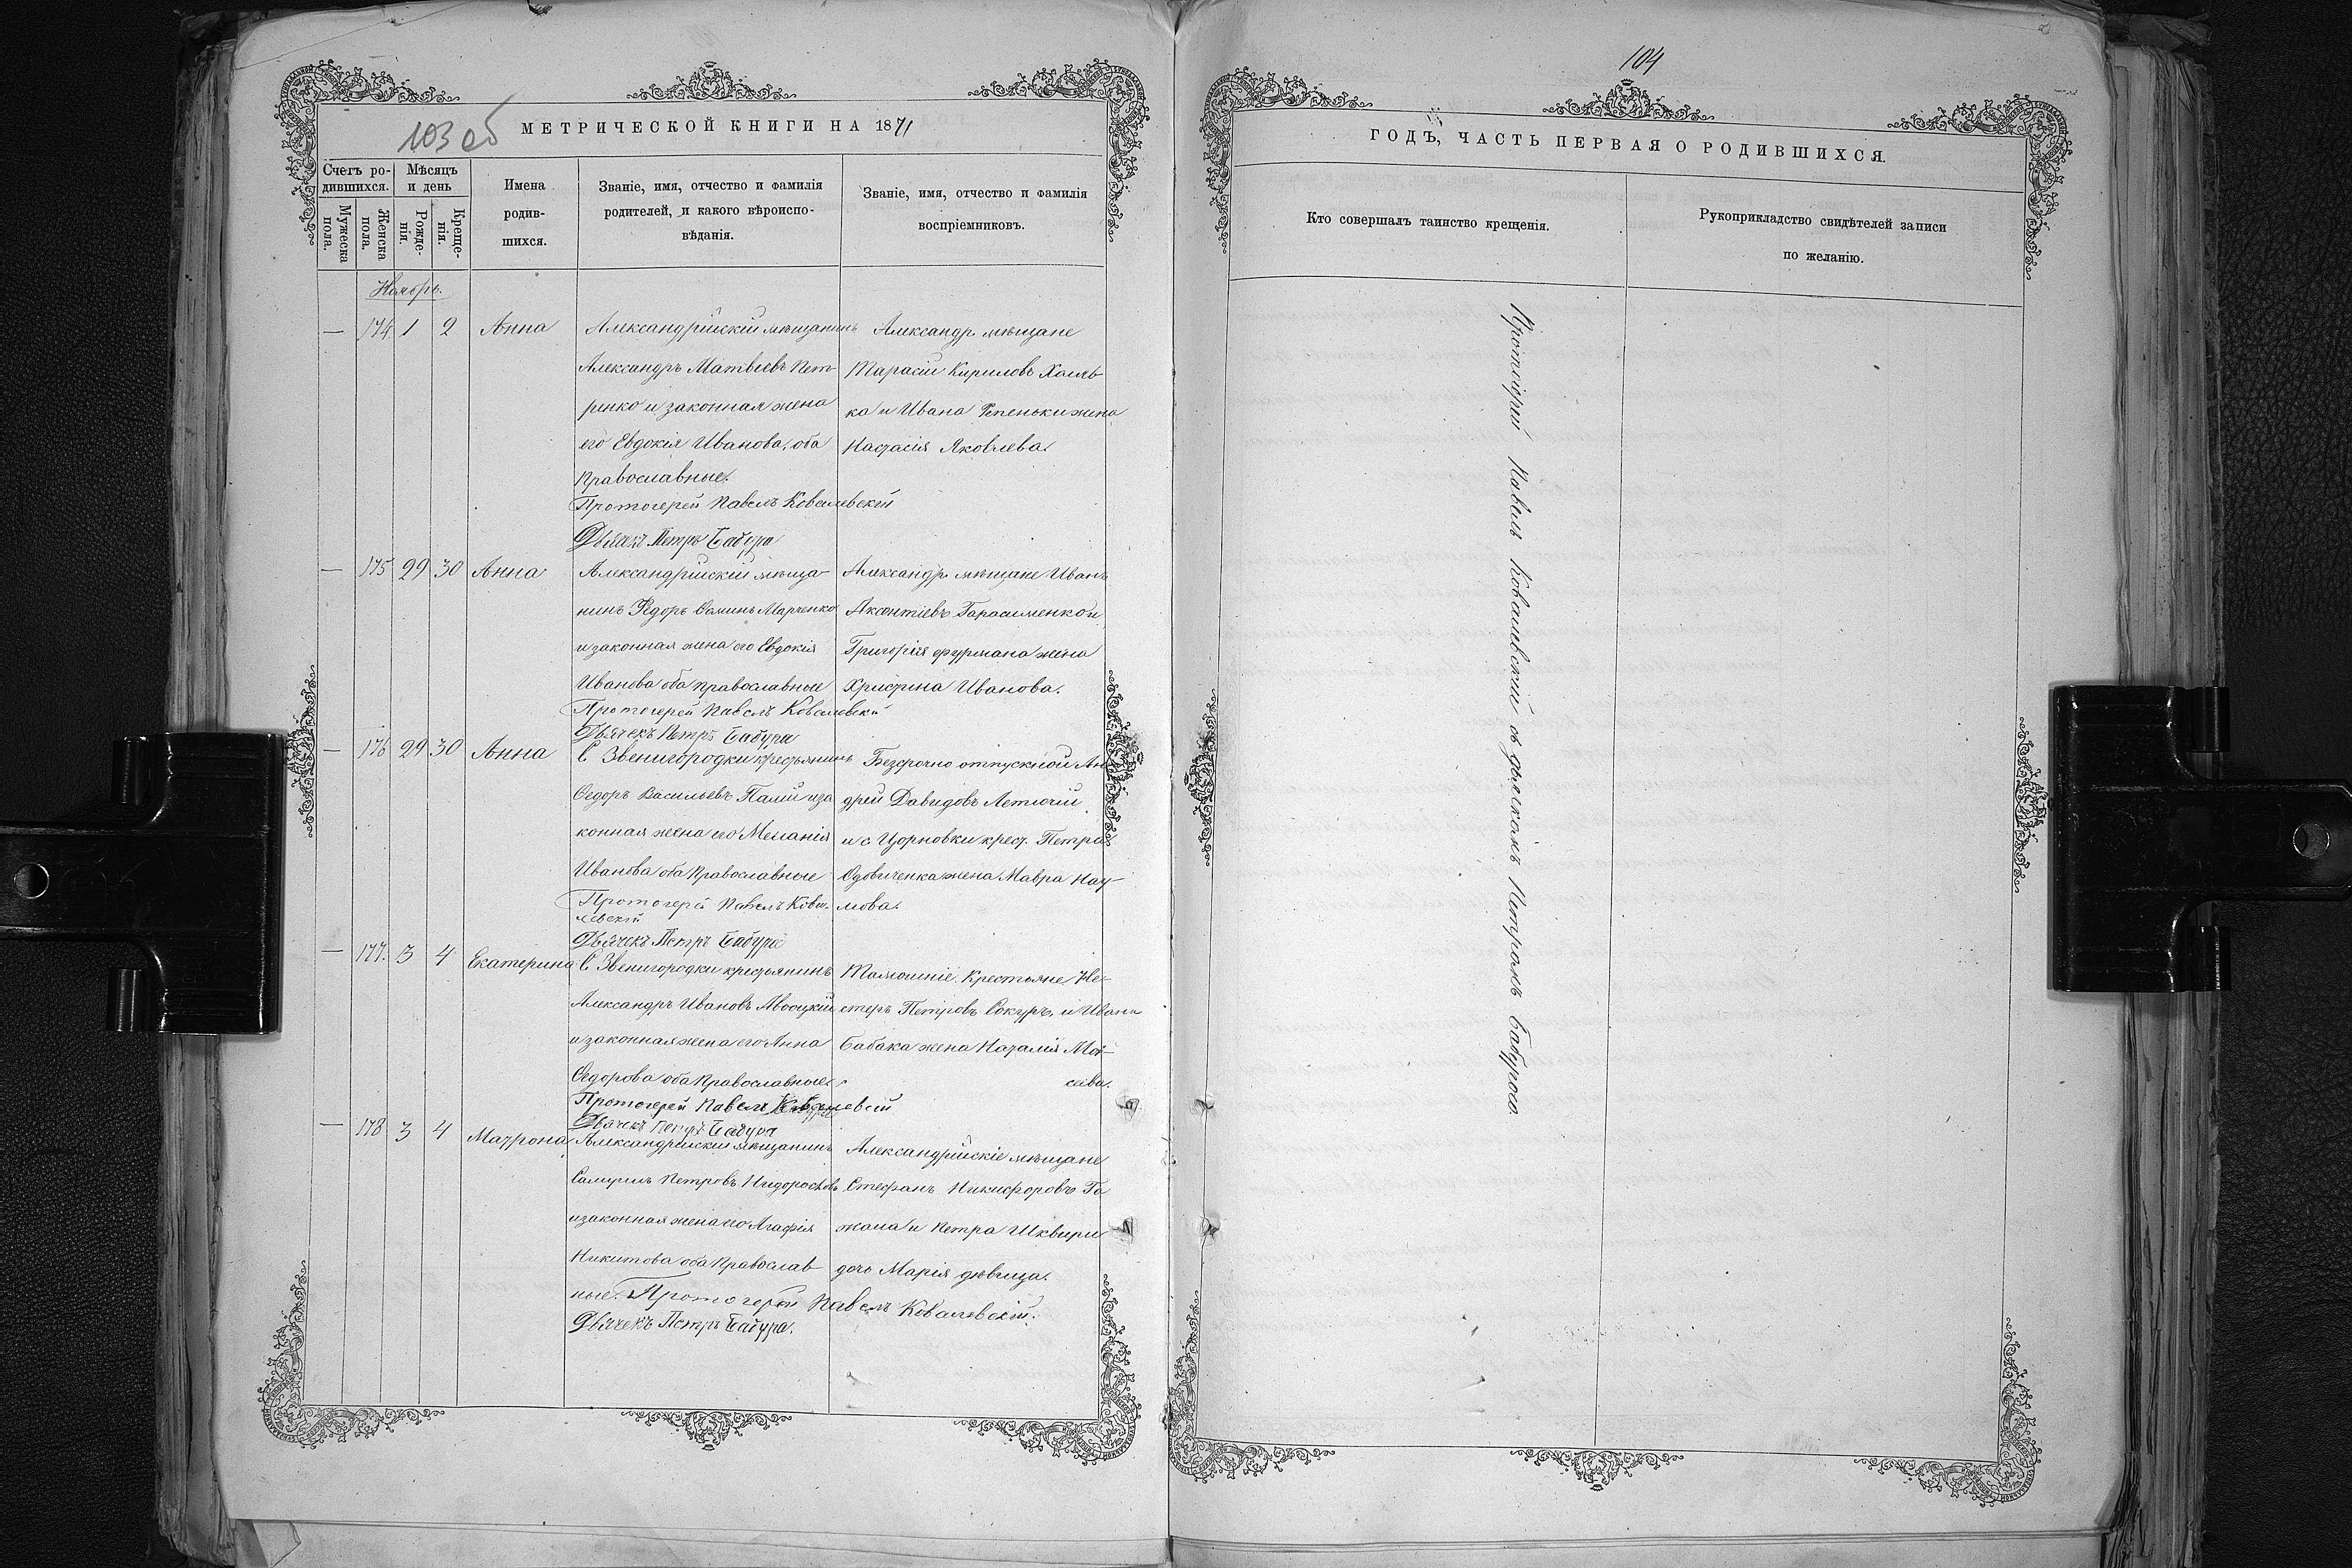 103 об
МЕТРИЧЕСКОЙ КНИГИ НА 1871
Счетъ ро-
дившихся.
Мужеска пола.
Женска пола.
Мѣсяцъ
и день
Рожде-
нія.
Креще-
нія.
Имена
родив-
шихся.
Званіе, имя, отчество и фамилія
родителей, и какого вѣроиспо-
вѣданія.
Званіе, имя, отчество и фамилія
воспріемниковъ.
Ноябрь.
— 174. 1 2 Анна
Александрійскій мѣщанинъ
Александръ Матвѣевъ Пет-
ренко и законная жена
его Евдокія Иванова, оба
православные.
Протоіерей Павелъ Ковалевскій
Дьячекъ Петръ Бабура
Александр. мѣщане
Тарасій Кириловъ Хомь-
ка и Ивана Репеньки жена
Настасія Яковлева.
— 175 29 30 Анна
Александрійскій мѣща-
нинъ Ѳедоръ Марченко
и законная жена его Евдокія
Иванова оба православные
Протоіерей Павелъ Ковалевскій
Дьячекъ Петръ Бабура
Александр. мѣщане Иванъ
Аксентіевъ Гарасименко и
Григорія фурмана жена
Христина Иванова.
— 176 29 30 Анна
С Звенигородки крестьянинъ
Ѳедоръ Васильевъ Палій и за
конная жена его Меланія
Иванова оба Православные
Протоіерей Павелъ Кова-
левскій
Дьячекъ Петръ Бабура
Безсрочно отпускной Ан
дрей Давидовъ Летючій
и с Цорновки крест. Петра
жена Мавра Нау-
мова.
— 177. 3 4 Екатерина
С Звенигородки крестьянинъ
Александръ Ивановъ
и законная жена его Анна
Ѳедорова оба Православные.
Протоіерей Павелъ Ковалевскій
Дьячекъ Петръ Бабура
Тамошніе Крестьяне Не-
стеръ Петровъ Сокуръ, и Ивана
Бабака жена Наталія Мои-
сеева.
— 178 3 4 Матрона
Александрійскій мѣщанинъ
Самуилъ Петровъ
и законная жена его Агафія
Никитова оба Православ
ные. Протоіерей Павелъ Ковалевскій.
Дьячекъ Петръ Бабура.
Александрійскіе мѣщане
Стефанъ Никифоровъ Го
жала и Петра Шквири
дочь Марія дѣвица.
104
ГОДЪ, ЧАСТЬ ПЕРВАЯ О РОДИВШИХСЯ.
Кто совершалъ таинство крещенія.
Рукоприкладство свидѣтелей записи
по желанію.
Протоіерей Павелъ Ковалевскій съ дьячкомъ Петромъ Бабурою.